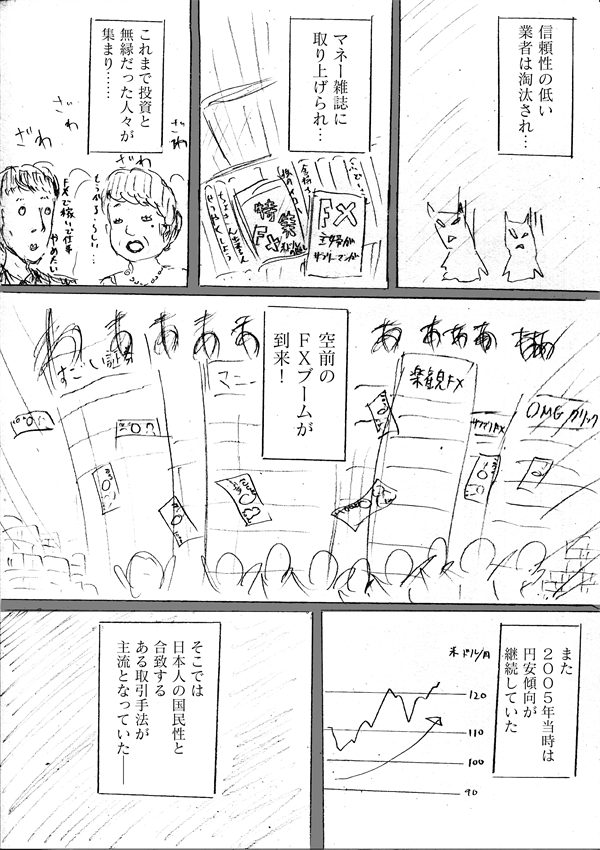 信頼性の低い
業者は淘汰され…
マネー雑誌に
取り上げられ…
特集
FX
FX
主婦が
サラリーマンが
これまで投資と
無縁だった人々が
集まり……
ざわ
ざわ
ざわ
ざわ
もうかるらしい…
FXで稼いで仕事
やめたい
空前の
FXブームが
到来!
わあああああ
ああああああ
すごい証券
マニー
楽観FX
サプリFX
OMGクリック
また
2005年当時は
円安傾向が
継続していた
米ドル/円
120
110
100
90
そこでは
日本人の国民性と
合致する
ある取引手法が
主流となっていた――